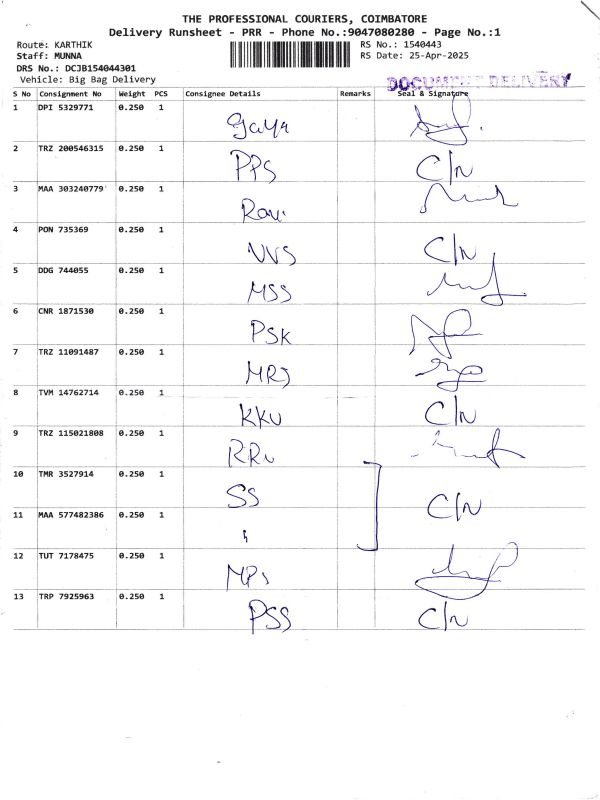 THE PROFESSIONAL COURIERS, COIMBATORE
Delivery Runsheet - PRR - Phone No.:9047080280 - Page No.:1
Route: KARTHIK RS No.: 1540443
Staff: MUNNA RS Date: 25-Apr-2025
DRS No.: DCJB154044301
Vehicle: Big Bag Delivery
DOCUMENT DELIVERY
S No Consignment No Weight PCS Consignee Details Remarks Seal & Signature
1 DPI 5329771 0.250 1
Gaya
2 TRZ 200546315 0.250 1
PPS C/N
3 MAA 303240779 0.250 1
Ravi
4 PON 735369 0.250 1
NVS C/N
5 DDG 744055 0.250 1
MSS
6 CNR 1871530 0.250 1
PSK
7 TRZ 11091487 0.250 1
MRJ
8 TVM 14762714 0.250 1
KKV C/N
9 TRZ 115021808 0.250 1
10 TMR 3527914 0.250 1
SS C/N
11 MAA 577482386 0.250 1
12 TUT 7178475 0.250 1
MPS
13 TRP 7925963 0.250 1
PSS C/N